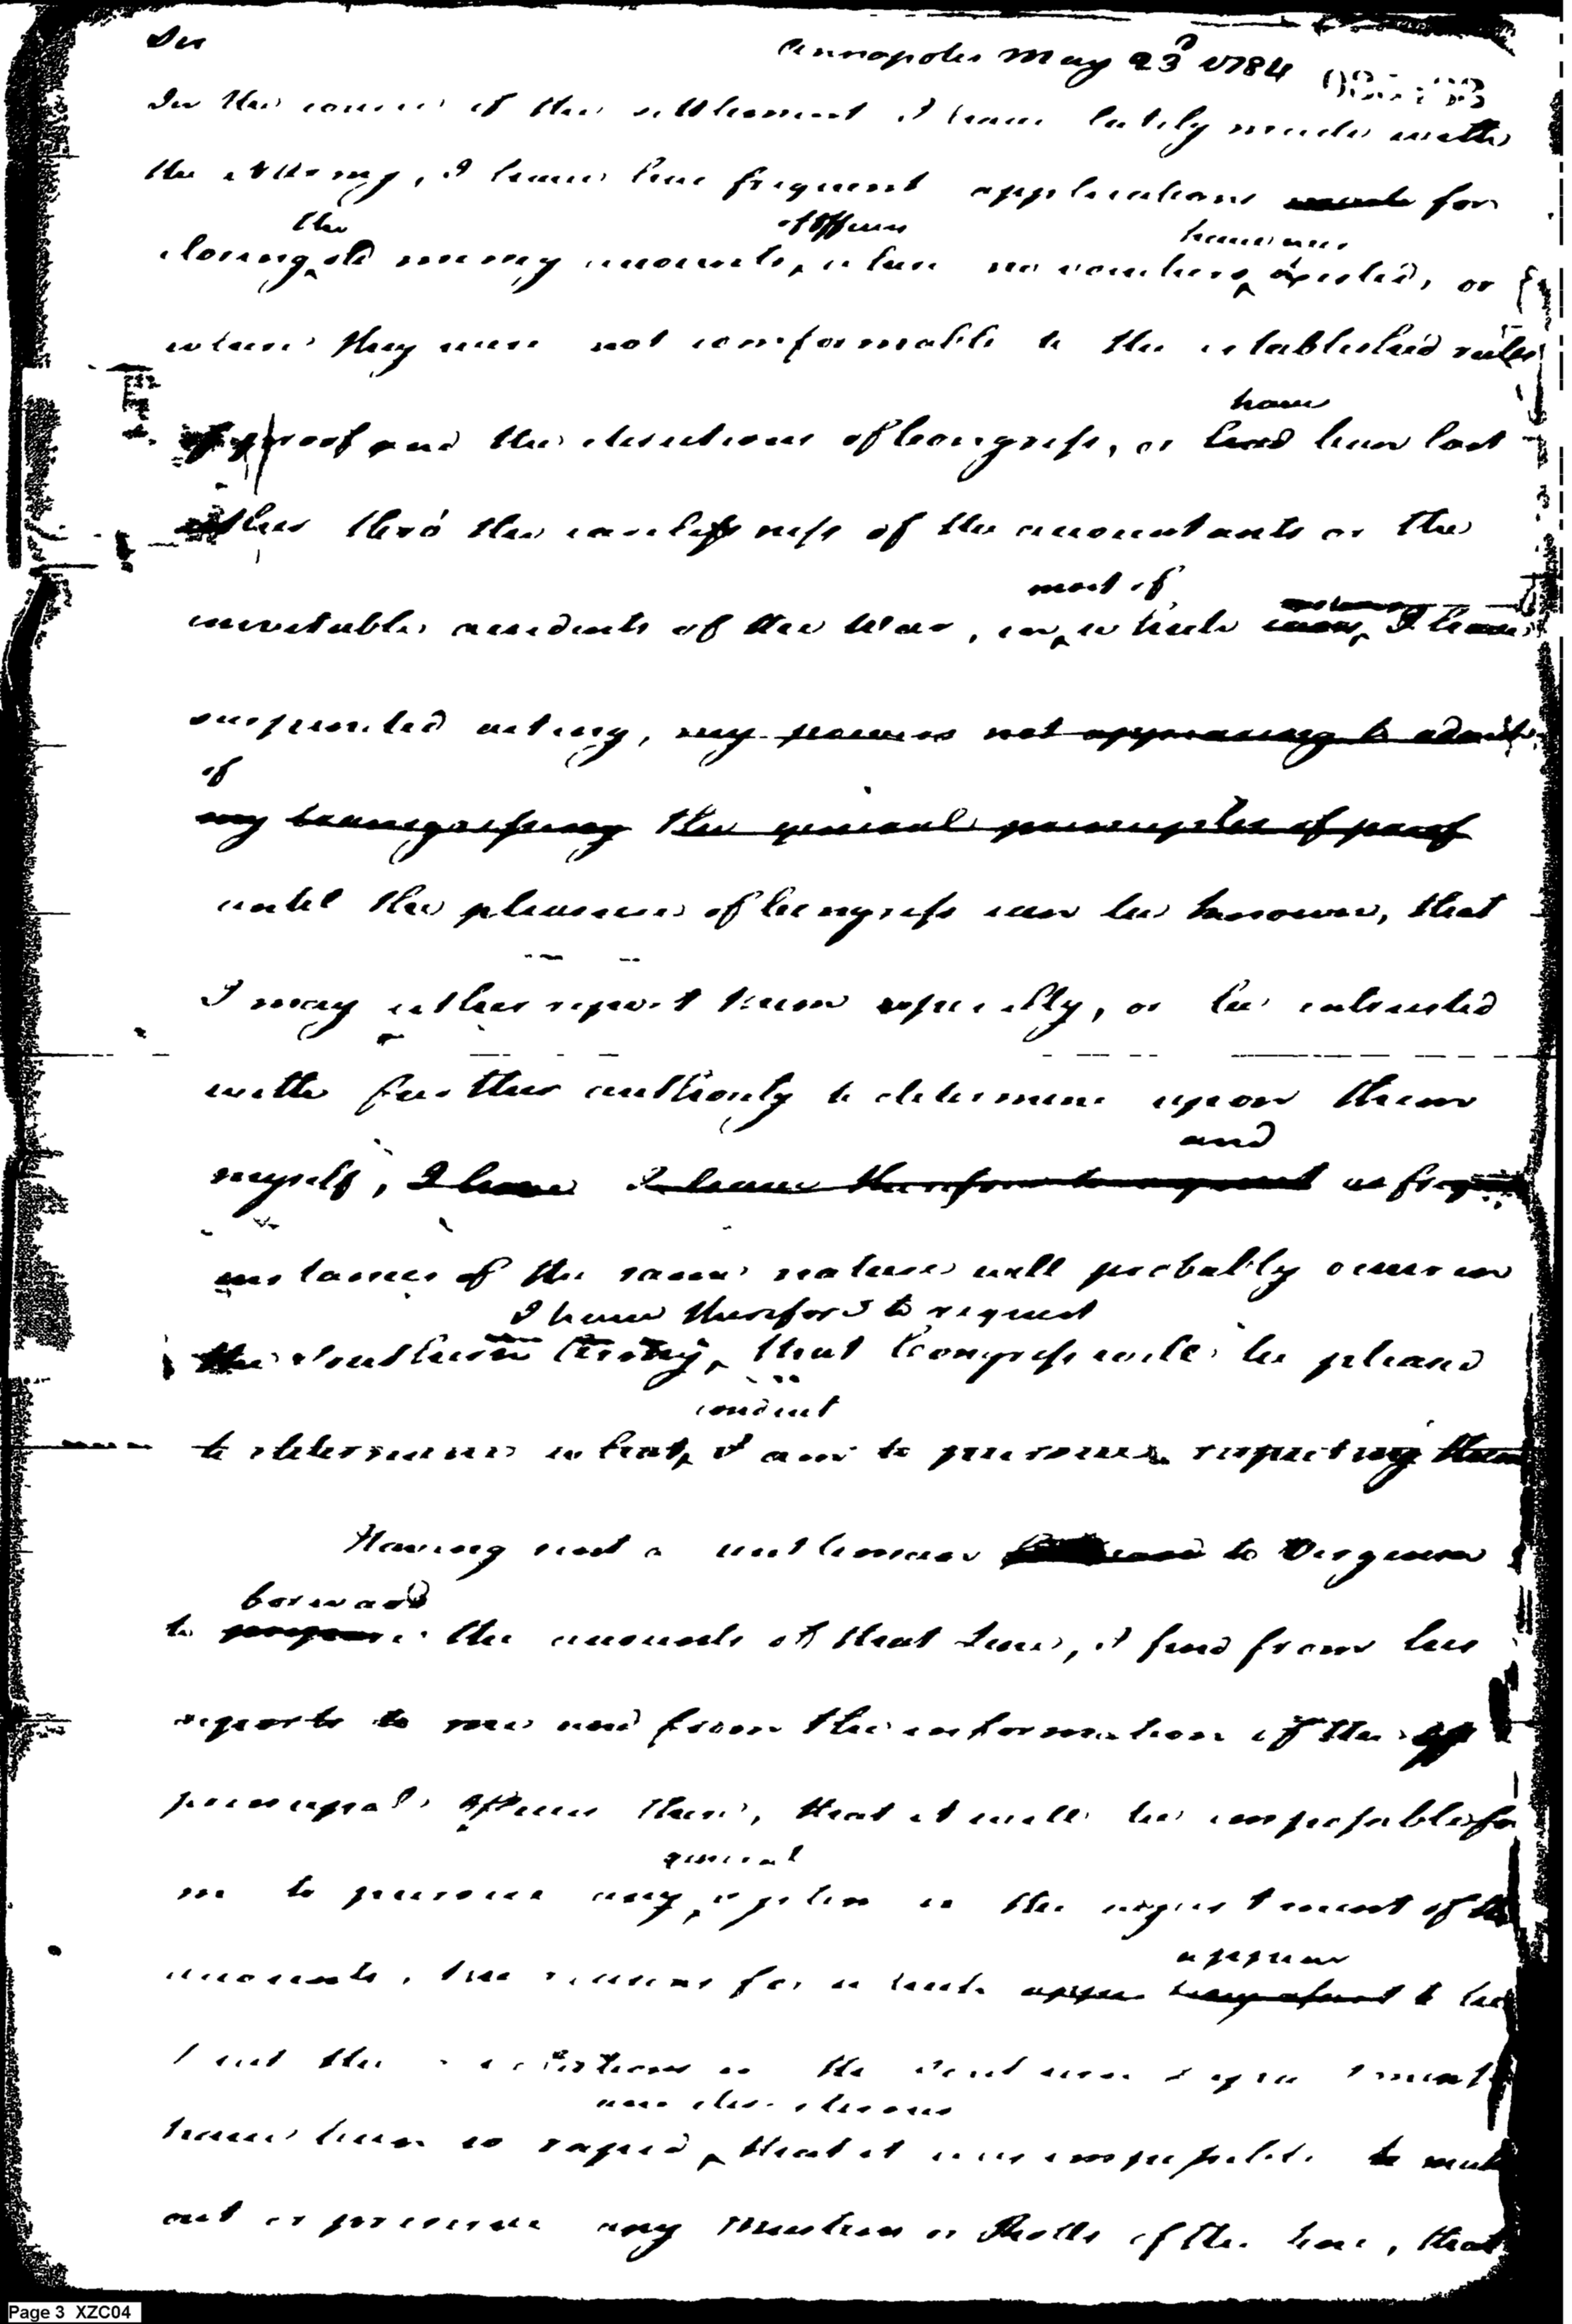 Sir
Annapolis May 23d 1784
In the course of the settlement I have lately made with
the Army, I have had frequent applications made for
the of Officers have ever
closing old money accounts, where no vouchers existed, or
where they were not conformable to the established rules
have
of proof and the directions of Congress, or had been lost
either thro' the carelessness of the accountants or the
most of
inevitable accidents of the War, in which cases, I have
suspended acting, my powers not appearing to admit
of
my transgressing the general principles of proof
until the pleasure of Congress can be known, that
I may either report them specially, or be intrusted
with further authority to determine upon them
and
myself, I have I have therefore to request as frequent
instances of the same nature will probably occur in
I have therefore to request
the Southern Army, that Congress will be pleased
conduct
to determine what I am to pursue respecting them
Having sent a Gentleman to Virginia
forward
to prepare the accounts of that Line, I find from his
reports to me and from the information of the
principal Officers there, that it will be impossible for
general
me to pursue any system in the adjustment of the
appear
accounts, the reasons for which appear to be
that the in the Southern department
and
have been so rapid, that it was impossible to make
out or preserve any Musters or Rolls of the line, that
Page 3 XZC04